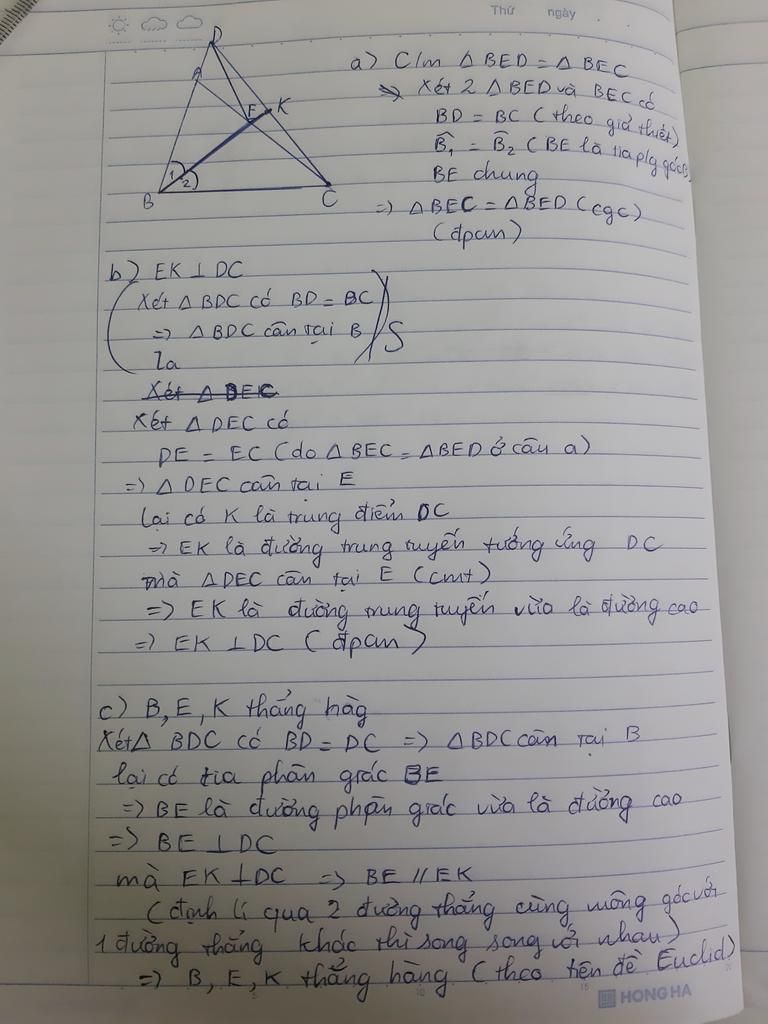 Thứ ngày
D
A
E K
1
2
B C
a) C/m △ BED = △ BEC
Xét 2 △ BED và BEC có
BD = BC (theo giả thiết)
B̂₁ = B̂₂ (BE là tia p/g góc B)
BE chung
=> △ BEC = △ BED (cgc)
(đpcm)
b) EK ⊥ DC
(Xét △ BDC có BD = BC
=> △ BDC cân tại B) S
la
Xét △ DEC
Xét △ DEC có
DE = EC (do △ BEC = △ BED ở câu a)
=> △ DEC cân tại E
lại có K là trung điểm DC
=> EK là đường trung tuyến tướng ứng DC
mà △ DEC cân tại E (cmt)
=> EK là đường trung tuyến vừa là đường cao
=> EK ⊥ DC (đpcm)
c) B, E, K thẳng hàg
Xét △ BDC có BD = DC => △ BDC cân tại B
lại có tia phân giác BE
=> BE là đường phận giác vừa là đường cao
=> BE ⊥ DC
mà EK ⊥ DC => BE // EK
(định lí qua 2 đường thẳng cùng vuông góc với
1 đường thẳng khác thì song song với nhau)
=> B, E, K thẳng hàng (theo tiên đề Euclid)
HONG HA